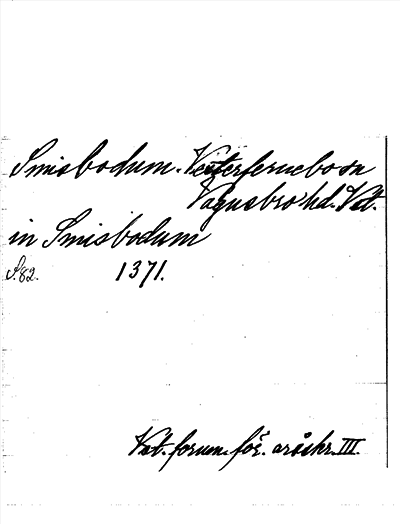 Smisbodum. Vesterfernebo sn
Vagnsbro hd. Vst.
in Smisbodum
S. 82. 1371.
Vst. fornm. för. årsskr. III.